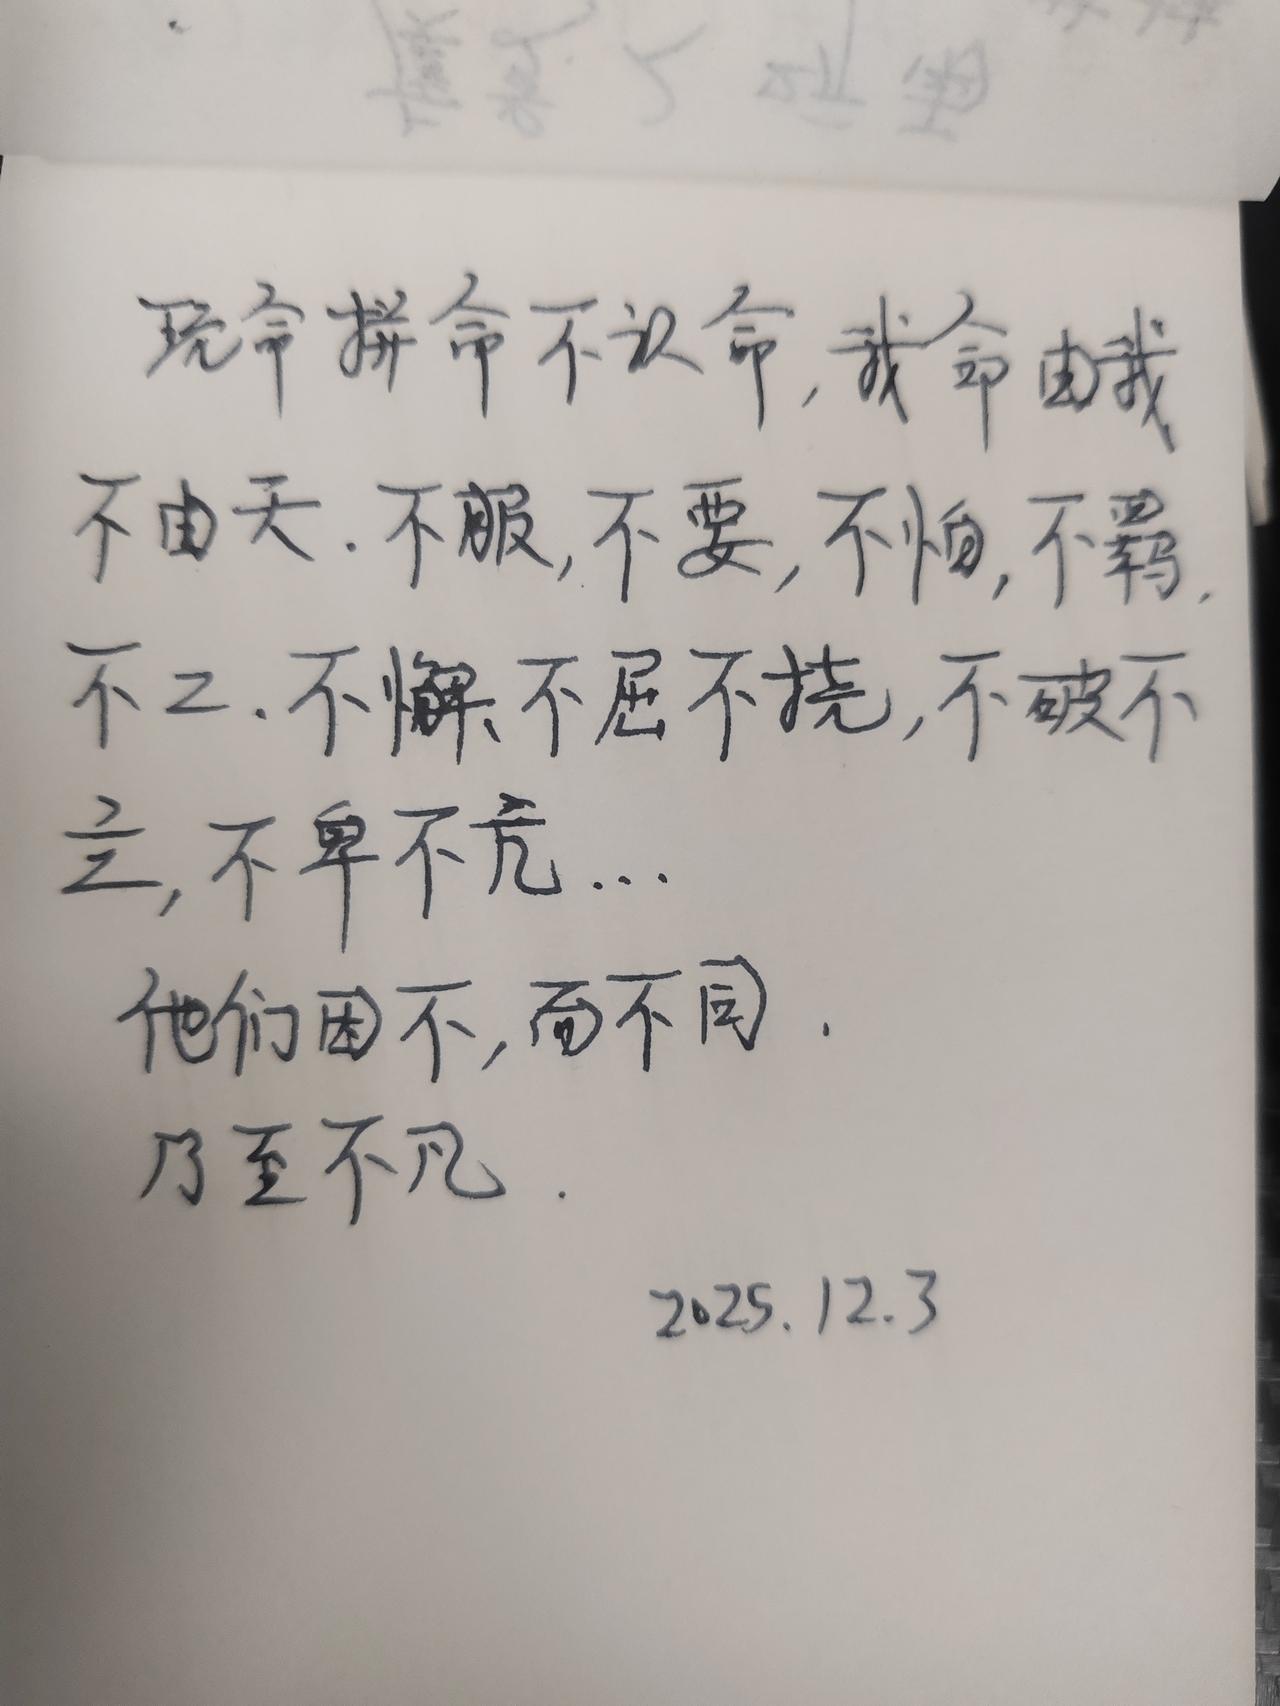 玩命拼命不认命,我命由我
不由天.不服,不要,不怕,不羁,
不二.不懈、不屈不挠,不破不
立,不卑不亢...
他们因不,而不同.
乃至不凡.
2025.12.3